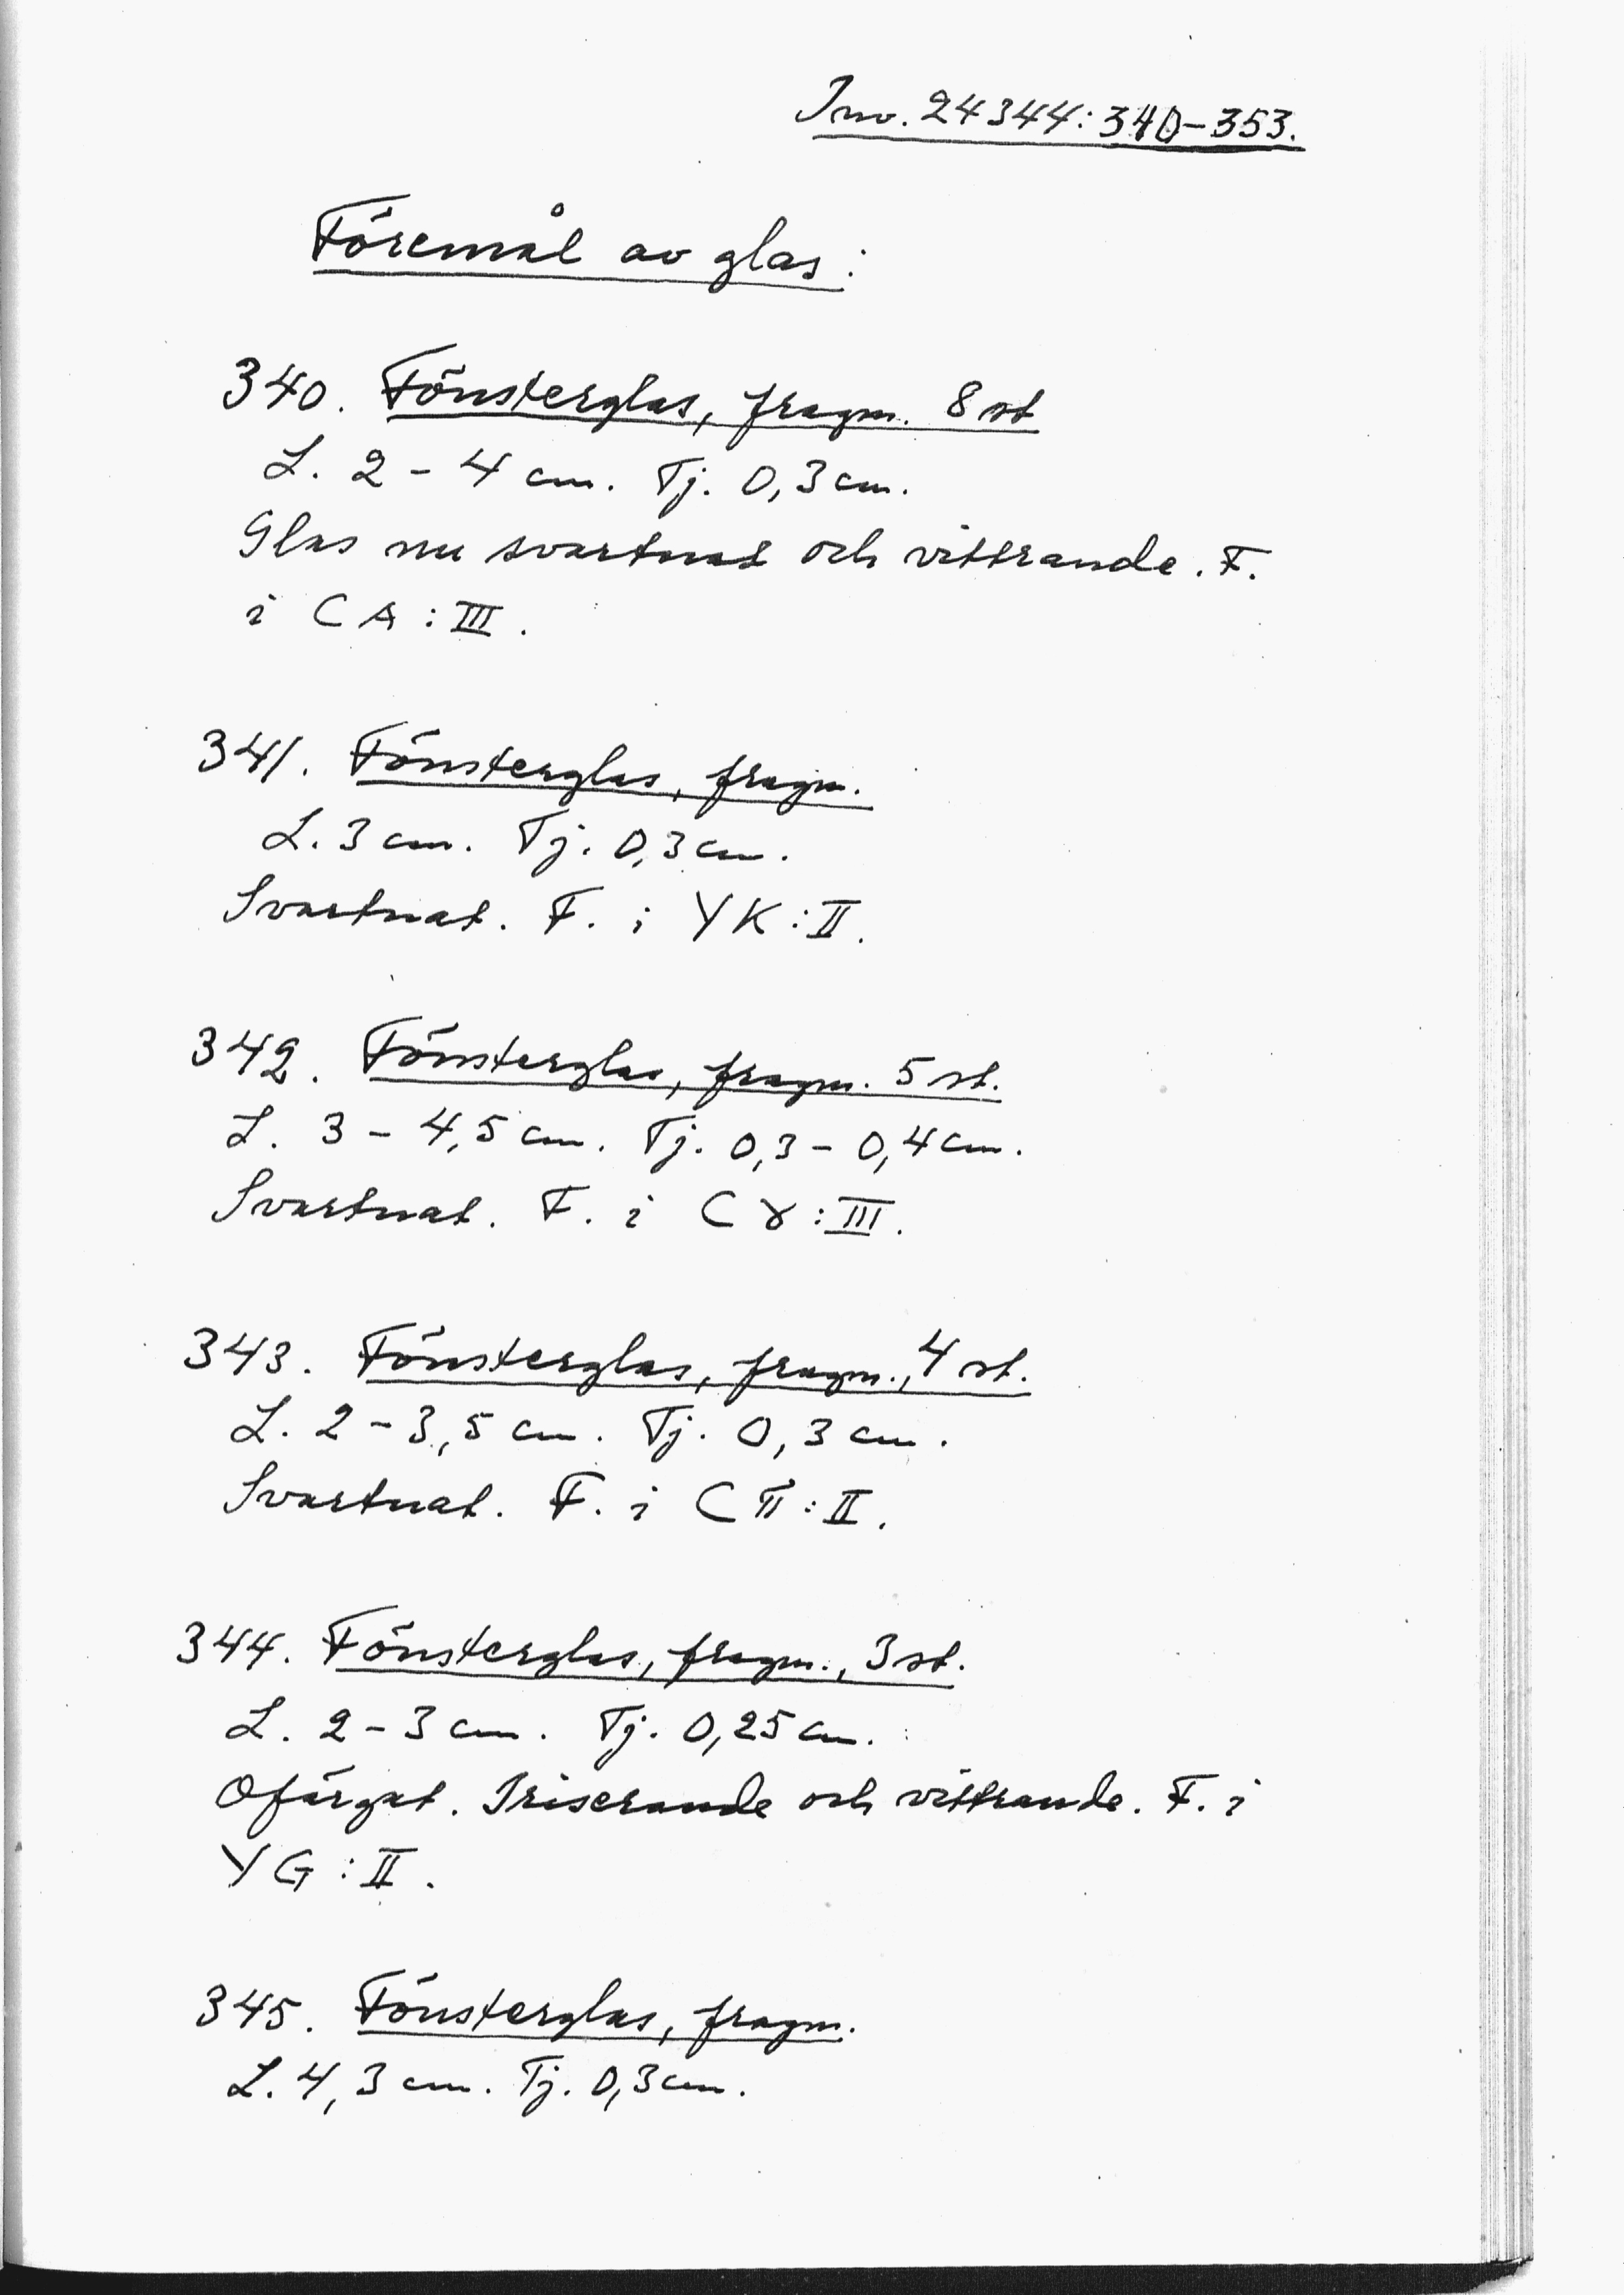 Inv. 24344:340-353.
Föremål av glas:
340. Fönsterglas, fragm. 8 st
L. 2 - 4 cm. Tj. 0,3 cm.
Glas nu svartnat och vittrande. F.
i CA:III.
341. Fönsterglas, fragm.
L. 3 cm. Tj. 0,3 cm.
Svartnat. F. i YK:II.
342. Fönsterglas, fragm. 5 st.
L. 3 - 4,5 cm. Tj. 0,3 - 0,4 cm.
Svartnat. F. i CY:III.
343. Fönsterglas, fragm., 4 st.
L. 2 - 3,5 cm. Tj. 0,3 cm.
Svartnat. F. i Cπ:II.
344. Fönsterglas, fragm., 3 st.
L. 2 - 3 cm. Tj. 0,25 cm.
Ofärgat. Iriserande och vittrande. F. i
YG:II.
345. Fönsterglas, fragm.
L. 4,3 cm. Tj. 0,3 cm.